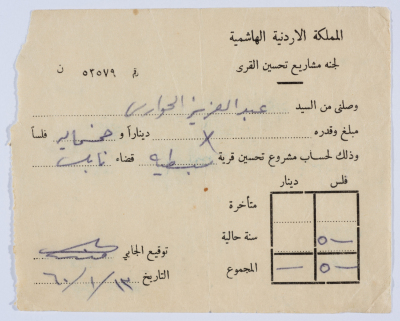 المملكة الاردنية الهاشمية
لجنه مشاريع تحسين القرى
رقم ٥٣٥٧٩ ن
وصلني من السيد عبد العزيز الحواري
مبلغ وقدره X ديناراً و خمسمايه فلساً
وذلك لحساب مشروع تحسين قرية سبسطيه قضاء نابلس
فلس دينار
متأخرة
سنة حالية ٥٠٠
المجموع ٥٠٠ —
توقيع الجابي
التاريخ ٦٠/١/١٣